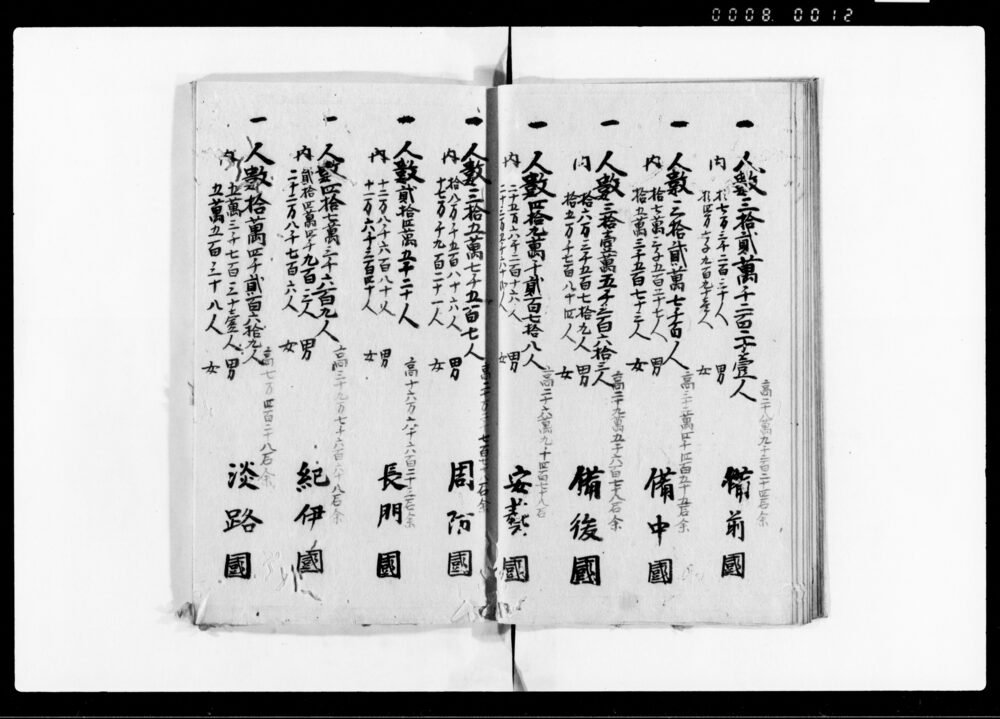 0008 0012
一 人數三拾貳萬千二百二十壹人
内
男
女
高二十八萬九千二百二十四石余
備前國
一 人數三拾貳萬七千百人
内 拾七萬二千五百二十七人 男
拾五萬三千五百七十三人 女
高三十二萬四千四百五十五石余
備中國
一 人數三拾壹萬五千三百六拾三人
内 拾六万三千五百七拾九人 男
拾五万千七百八十四人 女
高二十九萬五千六百七十八石余
備後國
一 人數四拾九萬千貳百七拾八人
内 二十五万六千二百十六人 男
女
安藝國
一 人數三拾五萬七千五百七人
内 拾八万千五百八十六人 男
十七万千九百二十一人 女
周防國
一 人數貳拾四萬五千二十人
内 十二万八千六百八十人 男
十一万六千三百四十人 女
高十六万六千六百二十三石余
長門國
一 人數四拾七萬三千六百九人
内 貳拾四萬四千九百三人 男
二十二万八千七百六人 女
高三十九万七千六百六十八石余
紀伊國
一 人數拾萬四千貳百六拾九人
内 五萬三千七百三十壹人 男
五萬五百三十八人 女
高七万四百二十八石余
淡路國